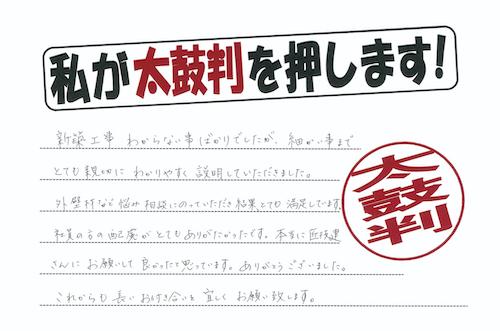 私が太鼓判を押します!
新築工事 わからない事ばかりでしたが、細かい事まで
とても親切に わかりやすく 説明していただきました。
外壁材など悩み相談にのっていただき結果とても満足しています。
社員の方の配慮がとてもありがたかったです。本当に匠技建
さんに お願いして 良かったと思っています。ありがとうございました。
これからも長いお付き合いを宜しくお願い致します。
太鼓判